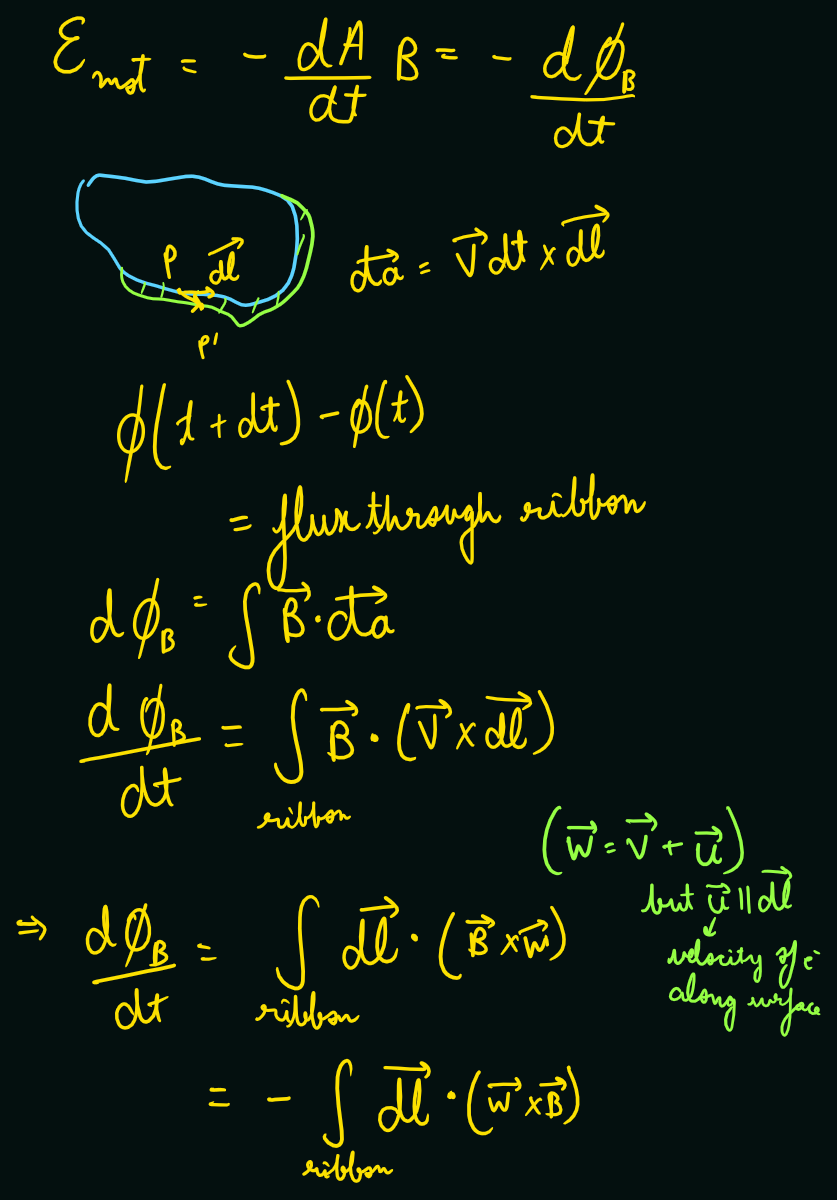 ℰ_mot = - dA/dt B = - dϕ_B/dt
P \vec{dl}
P'
\vec{da} = \vec{v} dt × \vec{dl}
ϕ(t + dt) - ϕ(t)
= flux through ribbon
dϕ_B = ∫ \vec{B} · \vec{da}
dϕ_B/dt = ∫_ribbon \vec{B} · (\vec{v} × \vec{dl})
(\vec{w} = \vec{v} + \vec{u})
but \vec{u} ∥ \vec{dl}
↓
velocity of e⁻
along surface
⇒ dϕ_B/dt = ∫_ribbon \vec{dl} · (\vec{B} × \vec{w})
= - ∫_ribbon \vec{dl} · (\vec{w} × \vec{B})